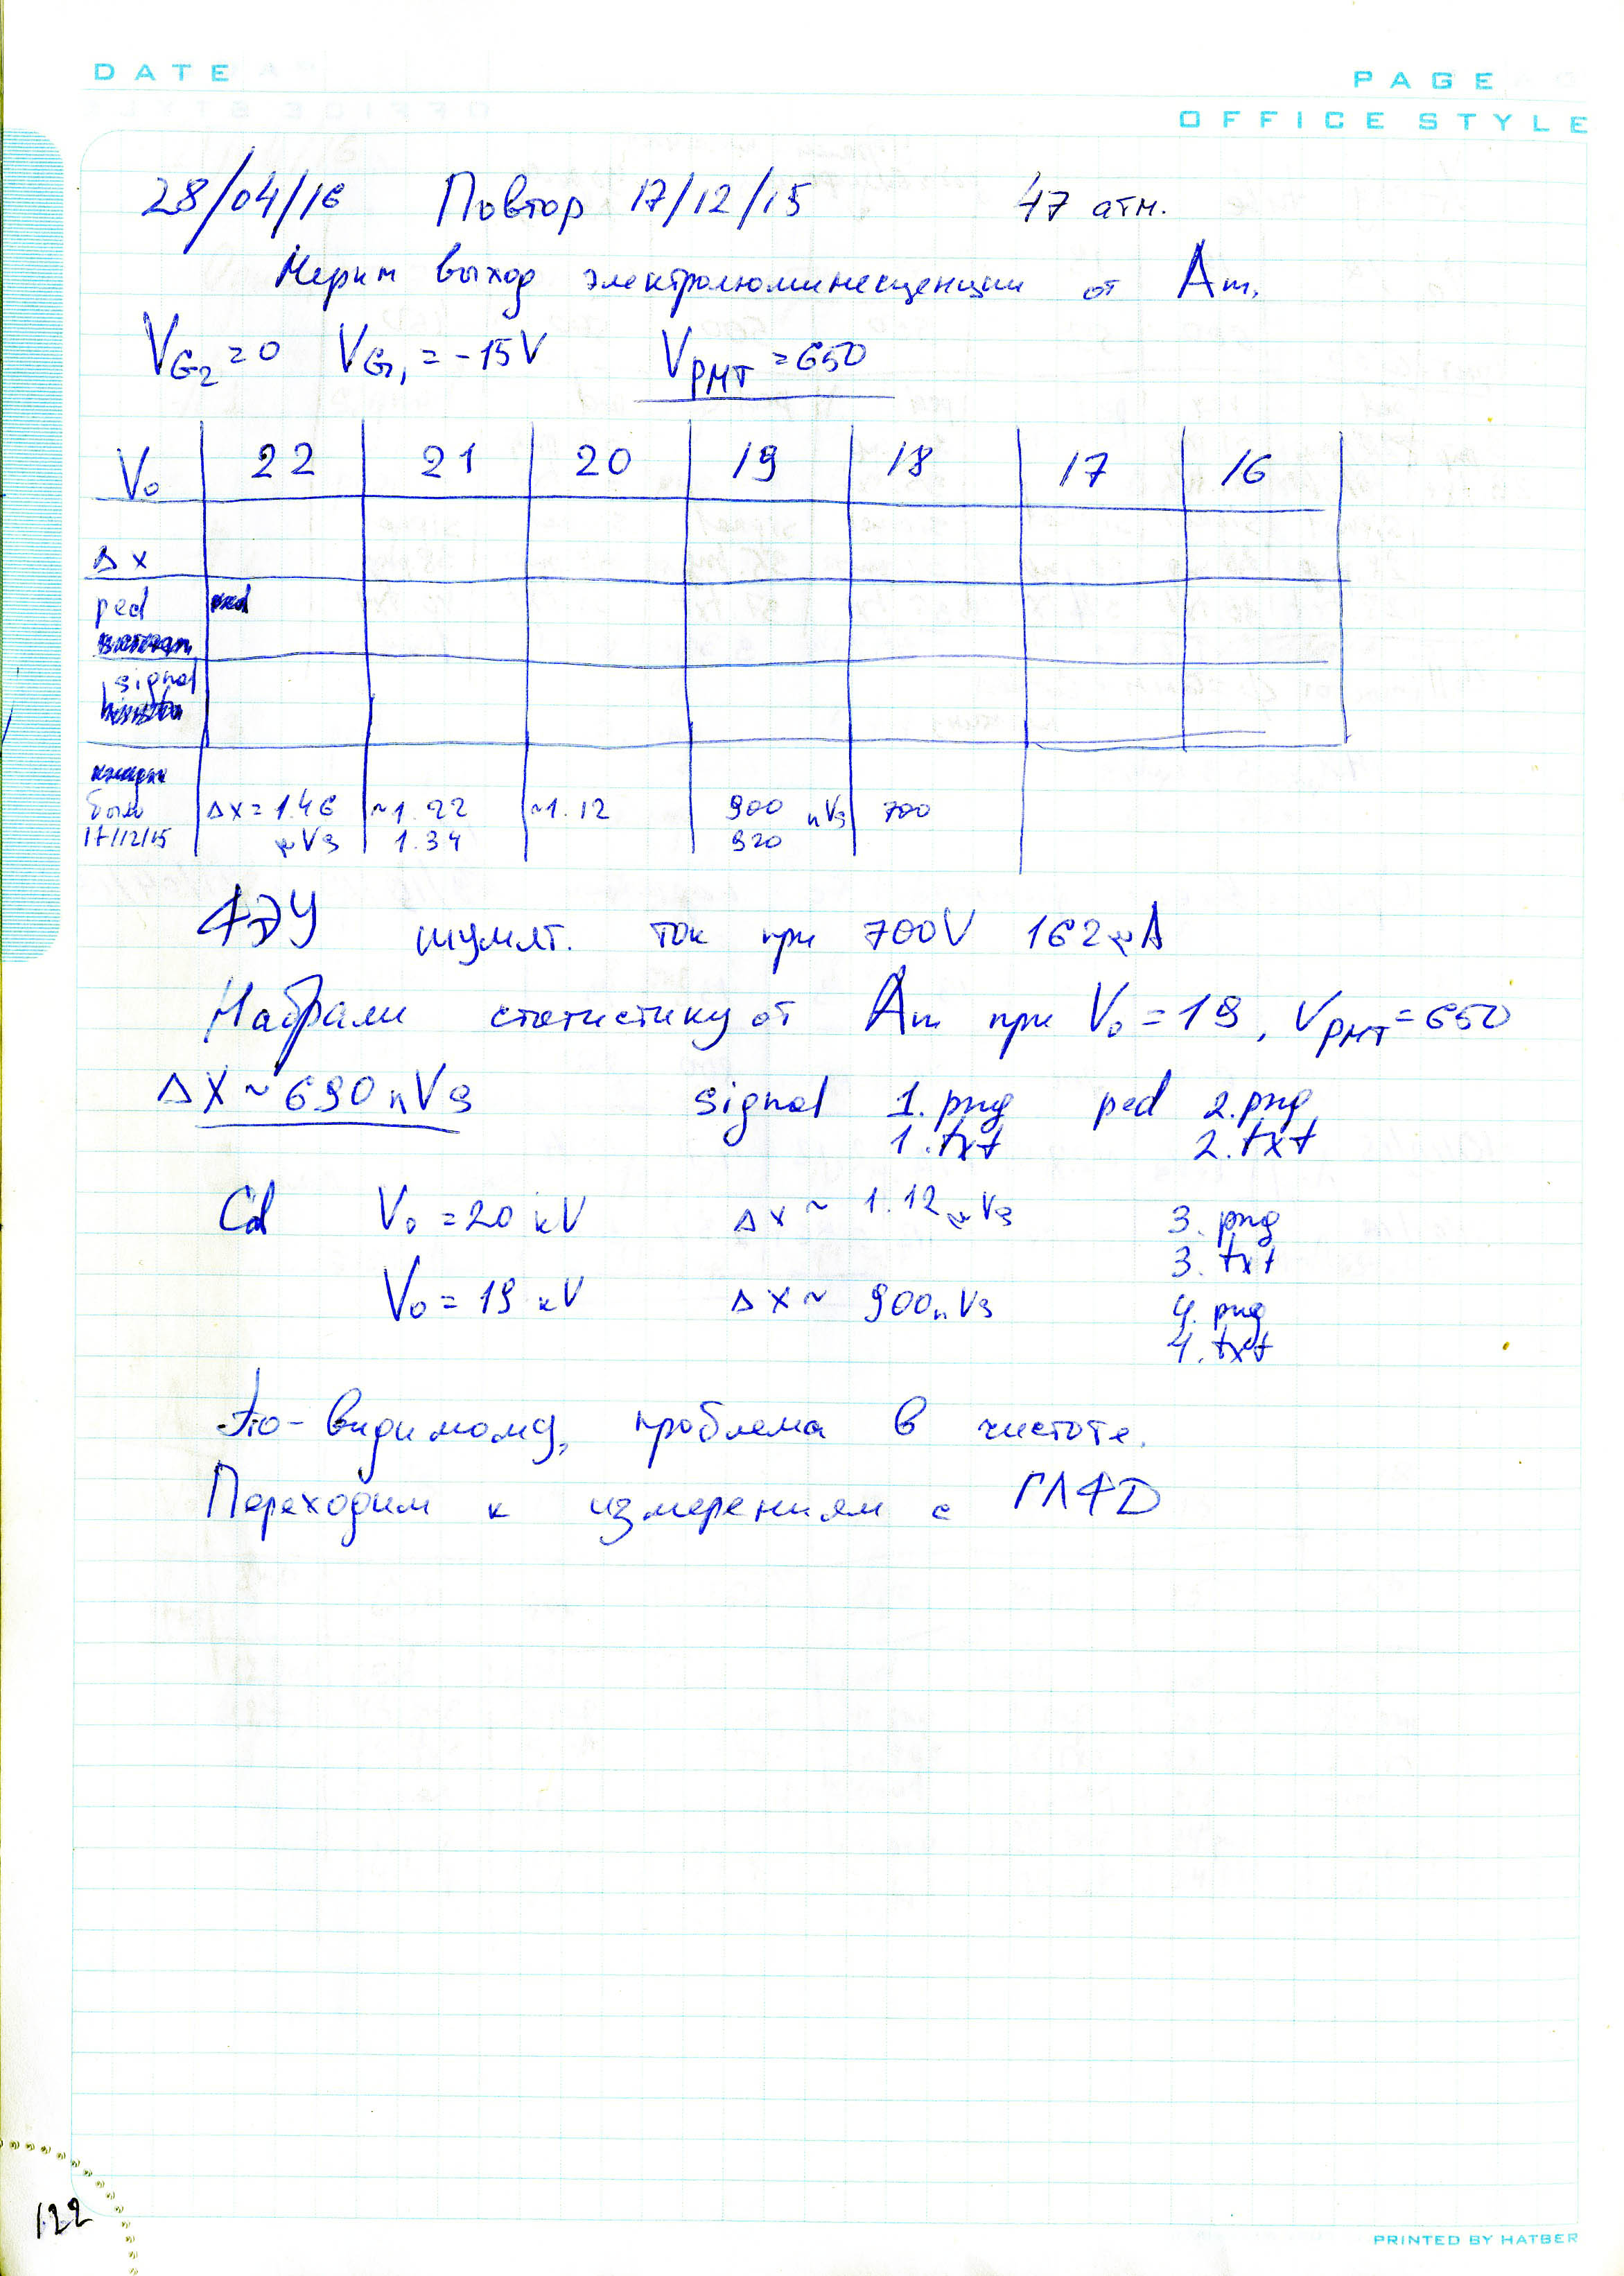 DATE
PAGE
OFFICE STYLE
28/04/16 Повтор 17/12/15 47 атм.
Мерим выход электролюминесценции от Am.
VG2 = 0 VG1 = -15V VPMT = 650
V0 22 21 20 19 18 17 16
Δx
ped
signal
было Δx = 1.46 ~1.22 ~1.12 900 nVs 700
17/12/15 μVs 1.34 920
ФЭУ шумят. ток при 700V 162 μA
Набрали статистику от Am при V0 = 19, VPMT = 650
ΔX ~ 690 nVs signal 1.png ped 2.png
1.txt 2.txt
Cd V0 = 20 kV Δx ~ 1.12 μVs 3.png
3.txt
V0 = 19 kV Δx ~ 900 nVs 4.png
4.txt
По-видимому, проблема в чистоте.
Переходим к измерениям с ГЛФД
122
PRINTED BY HATBER